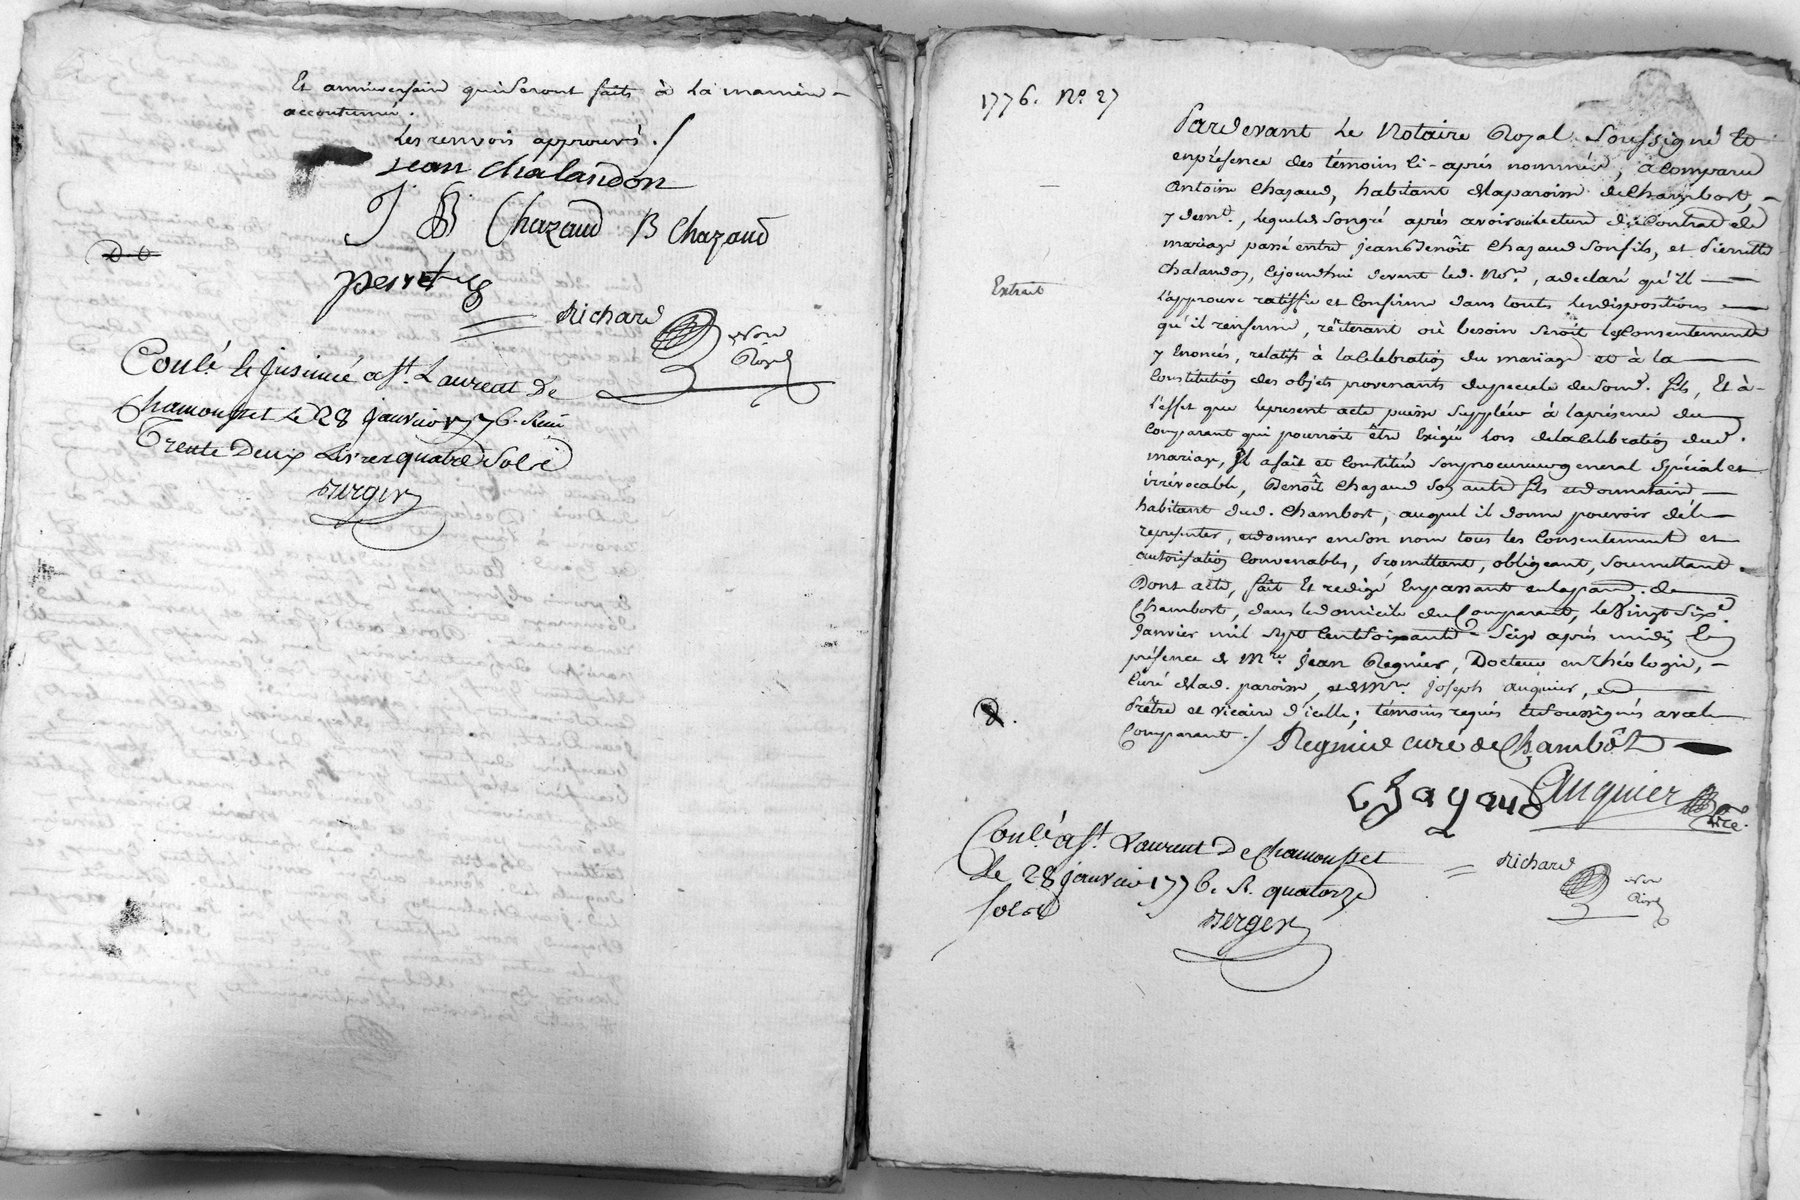 Et anniversaire qui seront faits à la maniere
accoutumé.
Les renvois approuvés. /
jean chalandon
J B Chazaud B Chazaud
perret
Richard
Nore
Royal
Conlé & Insinué a St. Laurent De
Chamousset Le 28 janvier 1776. Reçu
Trente Deux Livres quatre Sols
Berger
1776. No. 27
Extrait
Pardevant Le Notaire Royal Soussigné Et
en présence des témoins ci-après nommés, a Comparu
Antoine Chazaud, habitant de la paroisse de Chambost,
y demt., lequel de son gré après avoir oui lecture du Contrat de
mariage passé entre jean Benoît Chazaud son fils, et Pierrette
Chalandon, cejourdhui devant led. Nore, a declaré qu'Il
l'approuve ratiffie et Confirme dans toutes les dispositions
qu'il renferme, réiterant où besoin seroit les Consentements
y Enoncés, relatifs à la Celebration du mariage et à la
Constitution des objets provenants du pecule de sond. fils, Et à
l'effet que le present acte puisse Suppléer à la présence du
Comparant qui pourroit être Exigée lors de la Celebration dud.
mariage, Il a fait et Constitué son procureur general Spécial et
irrévocable, Benoît Chazaud son autre fils et donnataire
habitant dud. Chambost, auquel il donne pouvoir de le
representer, et donner en son nom tous les Consentements et
autorisation Convenables, Promettant, obligeant, Soumettant.
Dont acte, fait Et redigé En passant en la par. de
Chambost, dans le domicile du Comparant, le Vingt Six
Janvier mil Sept Cent Soixante-Seize après midy En
présence de Mre. Jean Regnier, Docteur en théologie,
Curé de lad. paroisse, et de Mre. Joseph Auguier,
Prêtre et vicaire d'icelle; témoins requis Et Soussignés avec le
Comparant. / Regnier curé de Chambôt
Chazaud Auguier
vice.
Richard
Nore
Royal
Conlé a St. Laurent De Chamousset
Le 28 janvier 1776. R. quatorze
sols
Berger